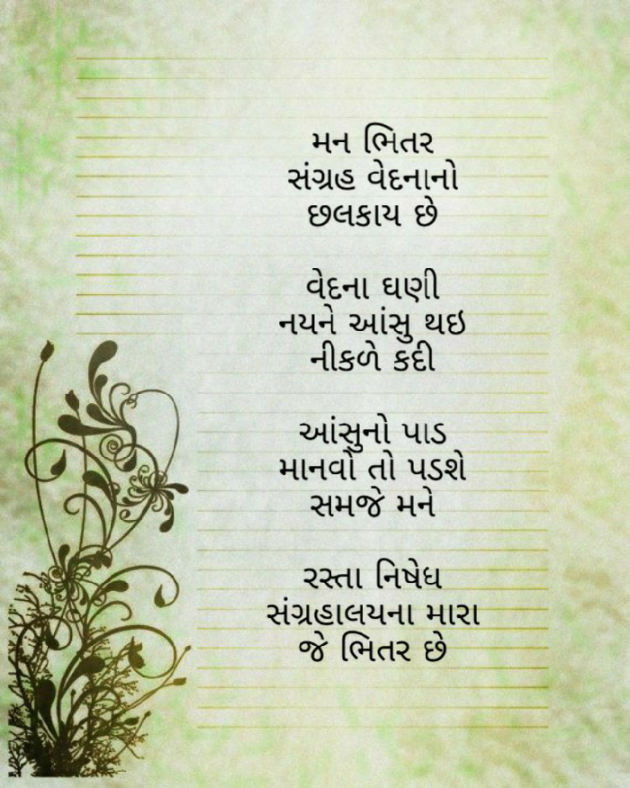 મન ભિતર
સંગ્રહ વેદનાનો
છલકાય છે
વેદના ઘણી
નયને આંસુ થઇ
નીકળે કદી
આંસુનો પાડ
માનવો તો પડશે
સમજે મને
રસ્તા નિષેધ
સંગ્રહાલયના મારા
જે ભિતર છે